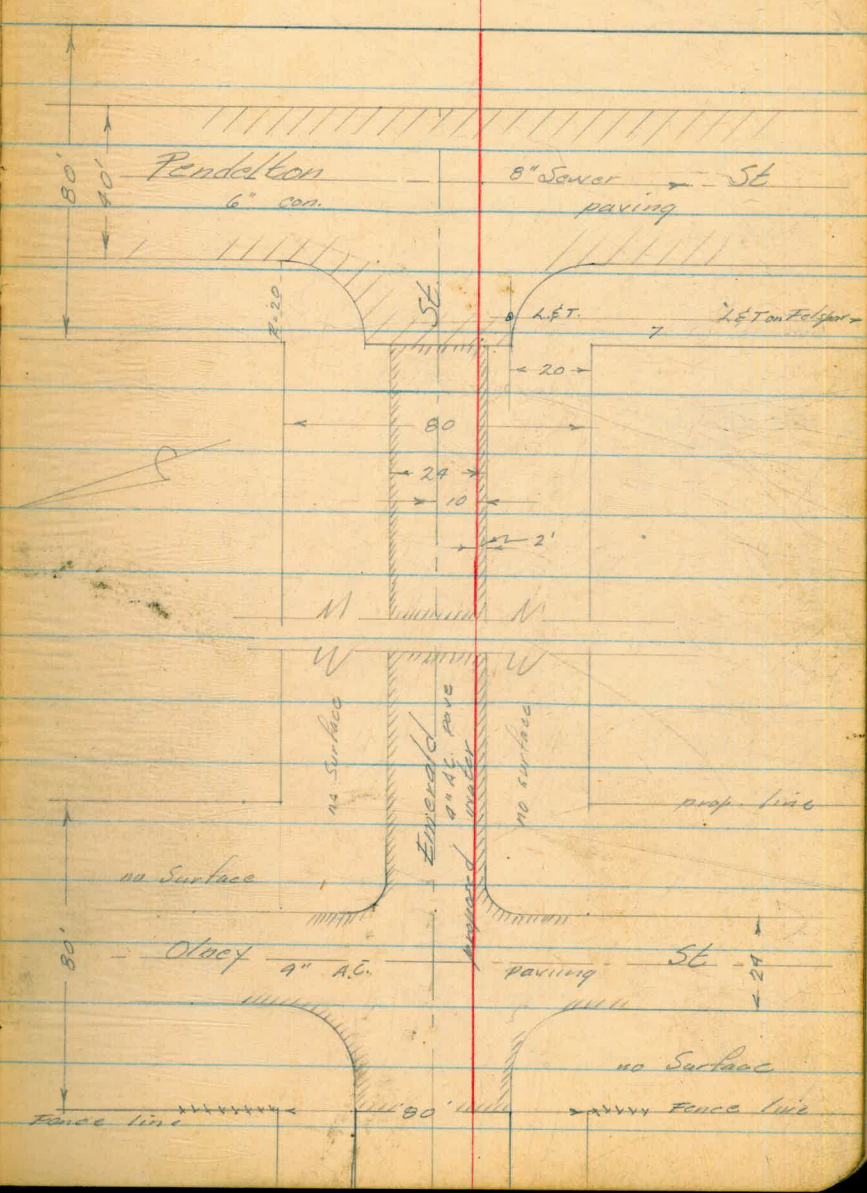 80'
40'
Pendelton 8" Sewer St
6" con. paving
R=20
St.
L.&T.
L&T on Felspar
7
20
80
24
10
2'
no Surface
Emerald
4" A.C. pave
proposed water
no surface
prop. line
no Surface
80'
Olney 4" A.C. paving St
24
no Surface
Fence line 80' Fence line